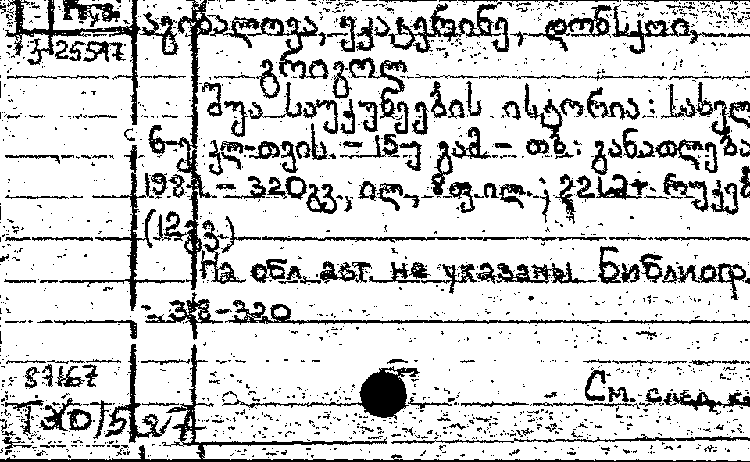 Груз.
3-25597
აგიბალოვა, ეკატერინე, დონსკოი,
გრიგოლ
შუა საუკუნეების ისტორია: სახელ
6-ე კლ-თვის. - 15-ე გამ. - თბ.: განათლება
198 - 320გვ., ილ., 8ფ.ილ.; 22სმ+ რუკებ
(12გვ.)
На обл. авт. не указаны. Библиогр.
: 318-320
87167
См. след. ка